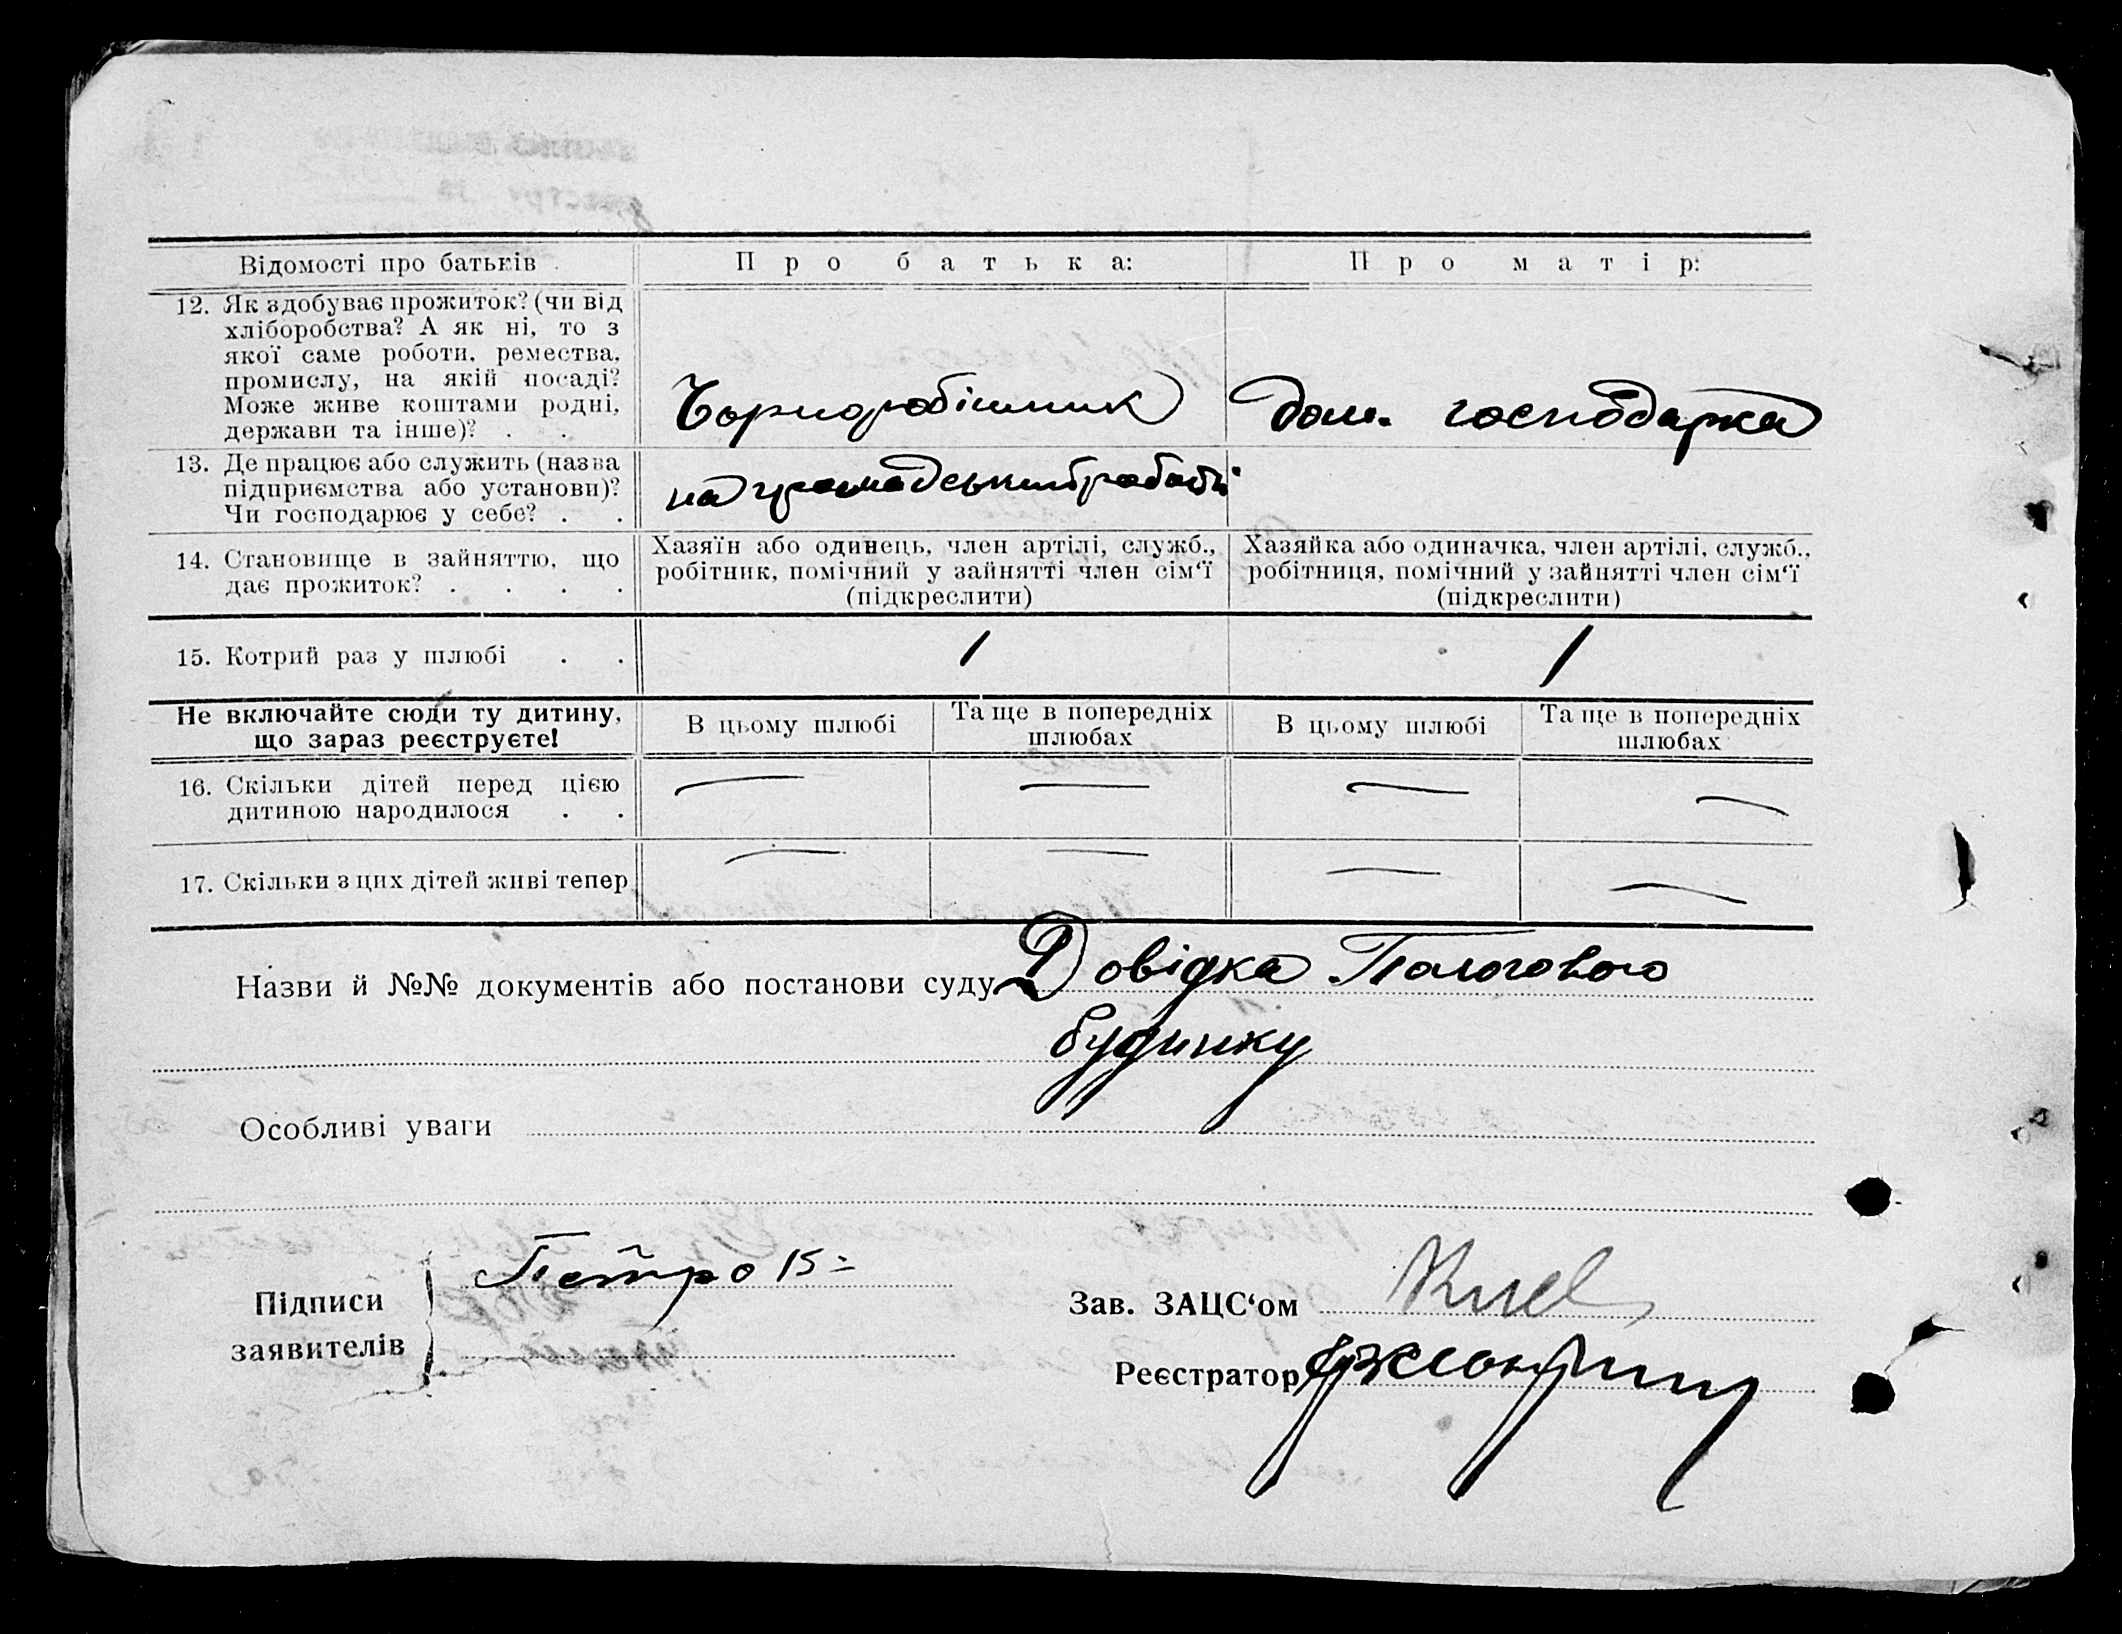 Відомості про батьків . Про батька: Про матір:
12. Як здобуває прожиток? (чи від
хліборобства? А як ні, то з
якої саме роботи, ремества,
промислу, на якій посаді?
Може живе коштами родні,
держави та інше)? . .
Чорноробітник
дом. господарка
13. Де працює або служить (назва
підприємства або установи)?
Чи господарює у себе? . .
на громадський роботі
14. Становище в зайняттю, що
дає прожиток? . . . .
Хазяїн або одинець, член артілі, служб.,
робітник, помічний у зайнятті член сім‘ї
(підкреслити)
Хазяйка або одиначка, член артілі, служб.,
робітниця, помічний у зайнятті член сім‘ї
(підкреслити)
15. Котрий раз у шлюбі . . 1 1
Не включайте сюди ту дитину,
що зараз реєструєте!
В цьому шлюбі
Та ще в попередніх
шлюбах
В цьому шлюбі
Та ще в попередніх
шлюбах
16. Скільки дітей перед цією
дитиною народилося . .
— — — —
17. Скільки з цих дітей живі тепер
— — — —
Назви й №№ документів або постанови суду Довідка Пологового
будинку
Особливі уваги
Підписи
заявителів
Петро
Зав. ЗАЦС‘ом
Реєстратор